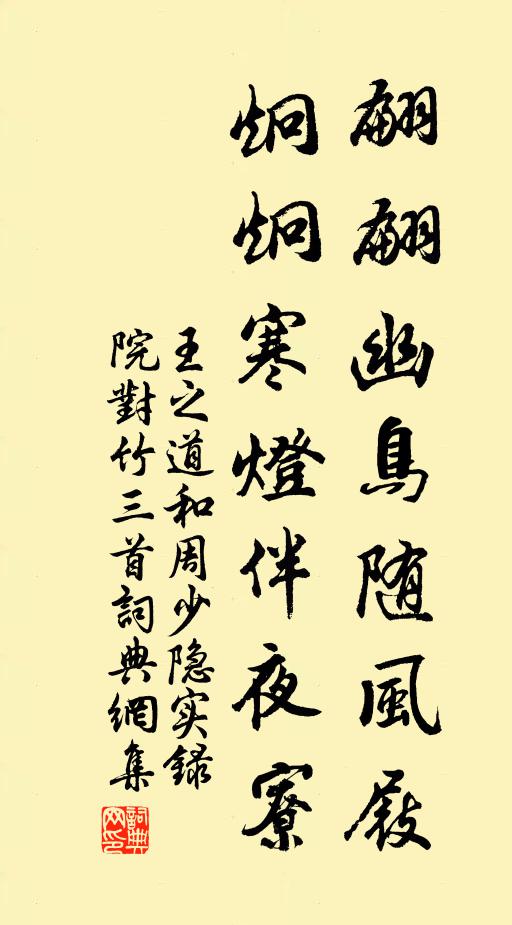 翩翩幽鳥随風屐
炯炯寒燈伴夜寮
王之道和周少隐实録
院對竹三首詞典網集
詞典
网印